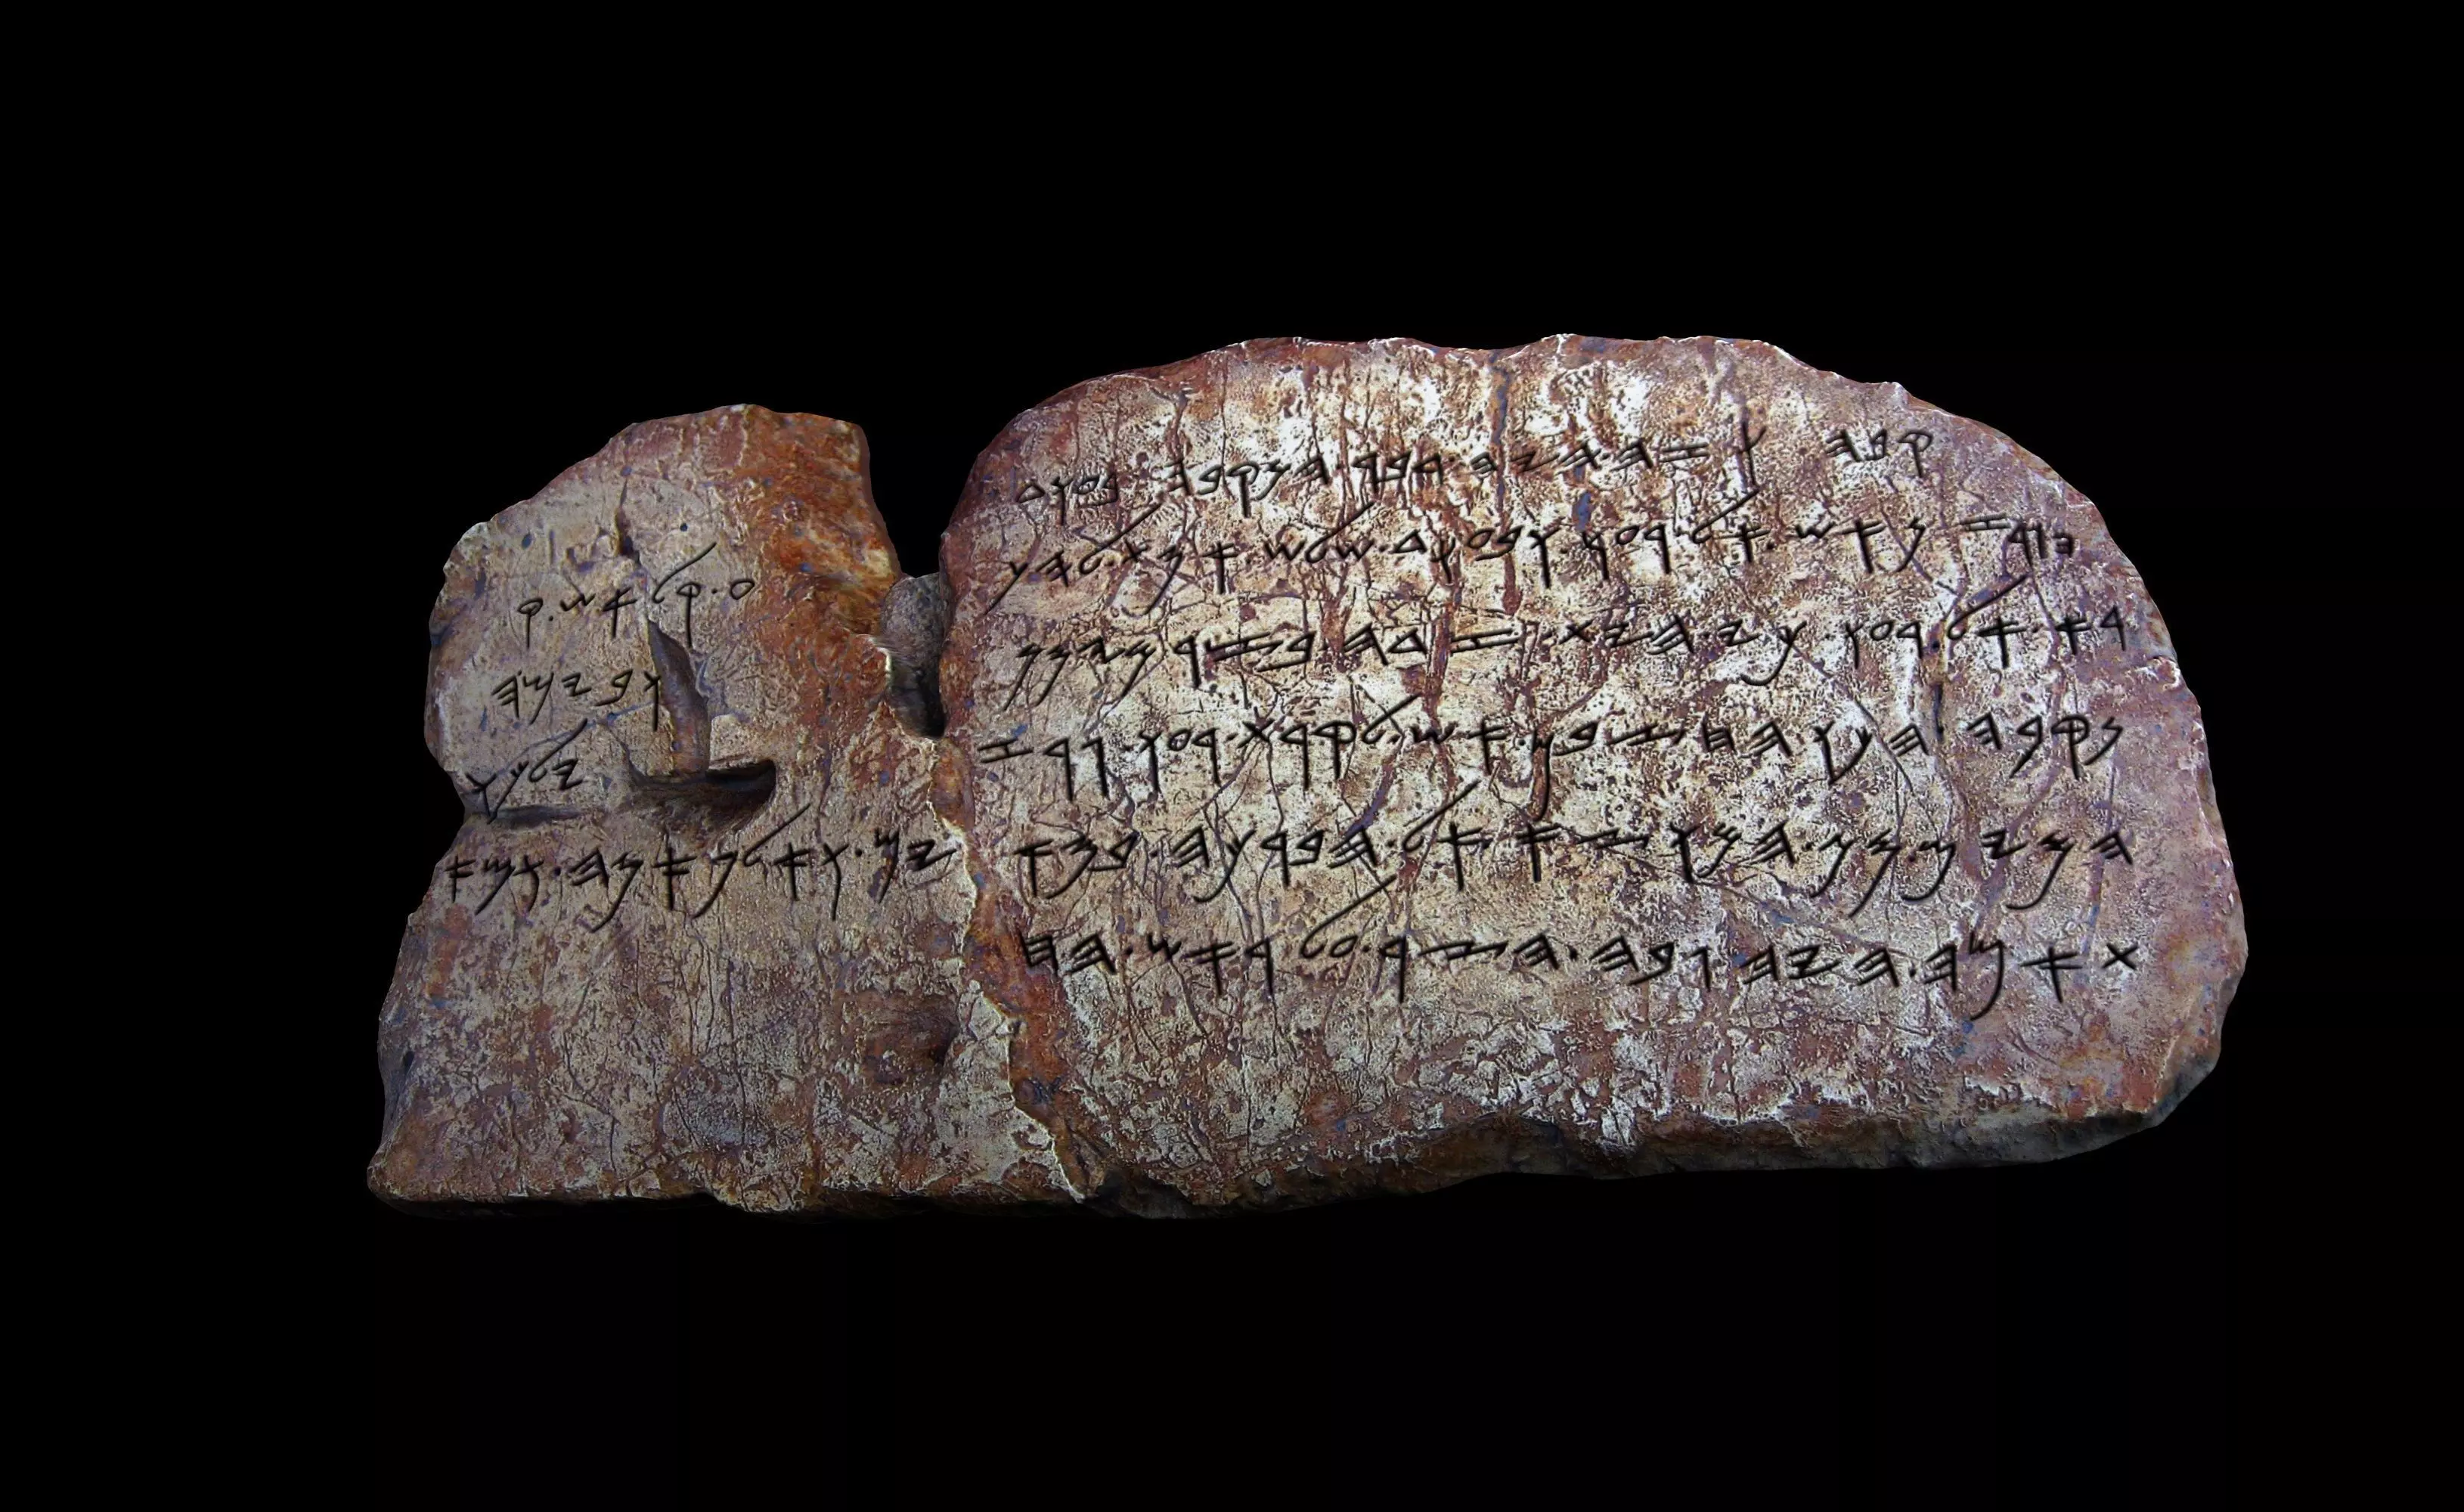 𐤒𐤁𐤄 𐤅𐤆𐤄·𐤄𐤉𐤄·𐤃𐤁𐤓·𐤄𐤍𐤒𐤁𐤄·𐤁𐤏𐤅𐤃
𐤄𐤂𐤓𐤆𐤍·𐤀𐤔·𐤀𐤋·𐤓𐤏𐤅·𐤅𐤁𐤏𐤅𐤃·𐤔𐤋𐤔·𐤀𐤌𐤕·𐤋𐤄𐤍 𐤏·𐤒𐤋·𐤀𐤔·𐤒
𐤓𐤀·𐤀𐤋·𐤓𐤏𐤅·𐤊𐤉·𐤄𐤉𐤕·𐤆𐤃𐤄·𐤁𐤑𐤓·𐤌𐤉𐤌𐤍 𐤅𐤁𐤉𐤌𐤄
𐤍𐤒𐤁𐤄·𐤄𐤊𐤅·𐤄𐤇𐤑𐤁𐤌·𐤀𐤔·𐤋𐤒𐤓𐤕·𐤓𐤏𐤅·𐤂𐤓𐤆 𐤉𐤋𐤊𐤅
𐤄𐤌𐤉𐤌·𐤌𐤍·𐤄𐤌𐤅𐤑𐤀·𐤀𐤋·𐤄𐤁𐤓𐤊𐤄·𐤁𐤌𐤀𐤕𐤉𐤌·𐤅𐤀𐤋𐤐·𐤀𐤌𐤄·𐤅𐤌𐤀
𐤕·𐤀𐤌𐤄·𐤄𐤉𐤄·𐤂𐤁𐤄·𐤄𐤑𐤓·𐤏𐤋·𐤓𐤀𐤔·𐤄𐤇